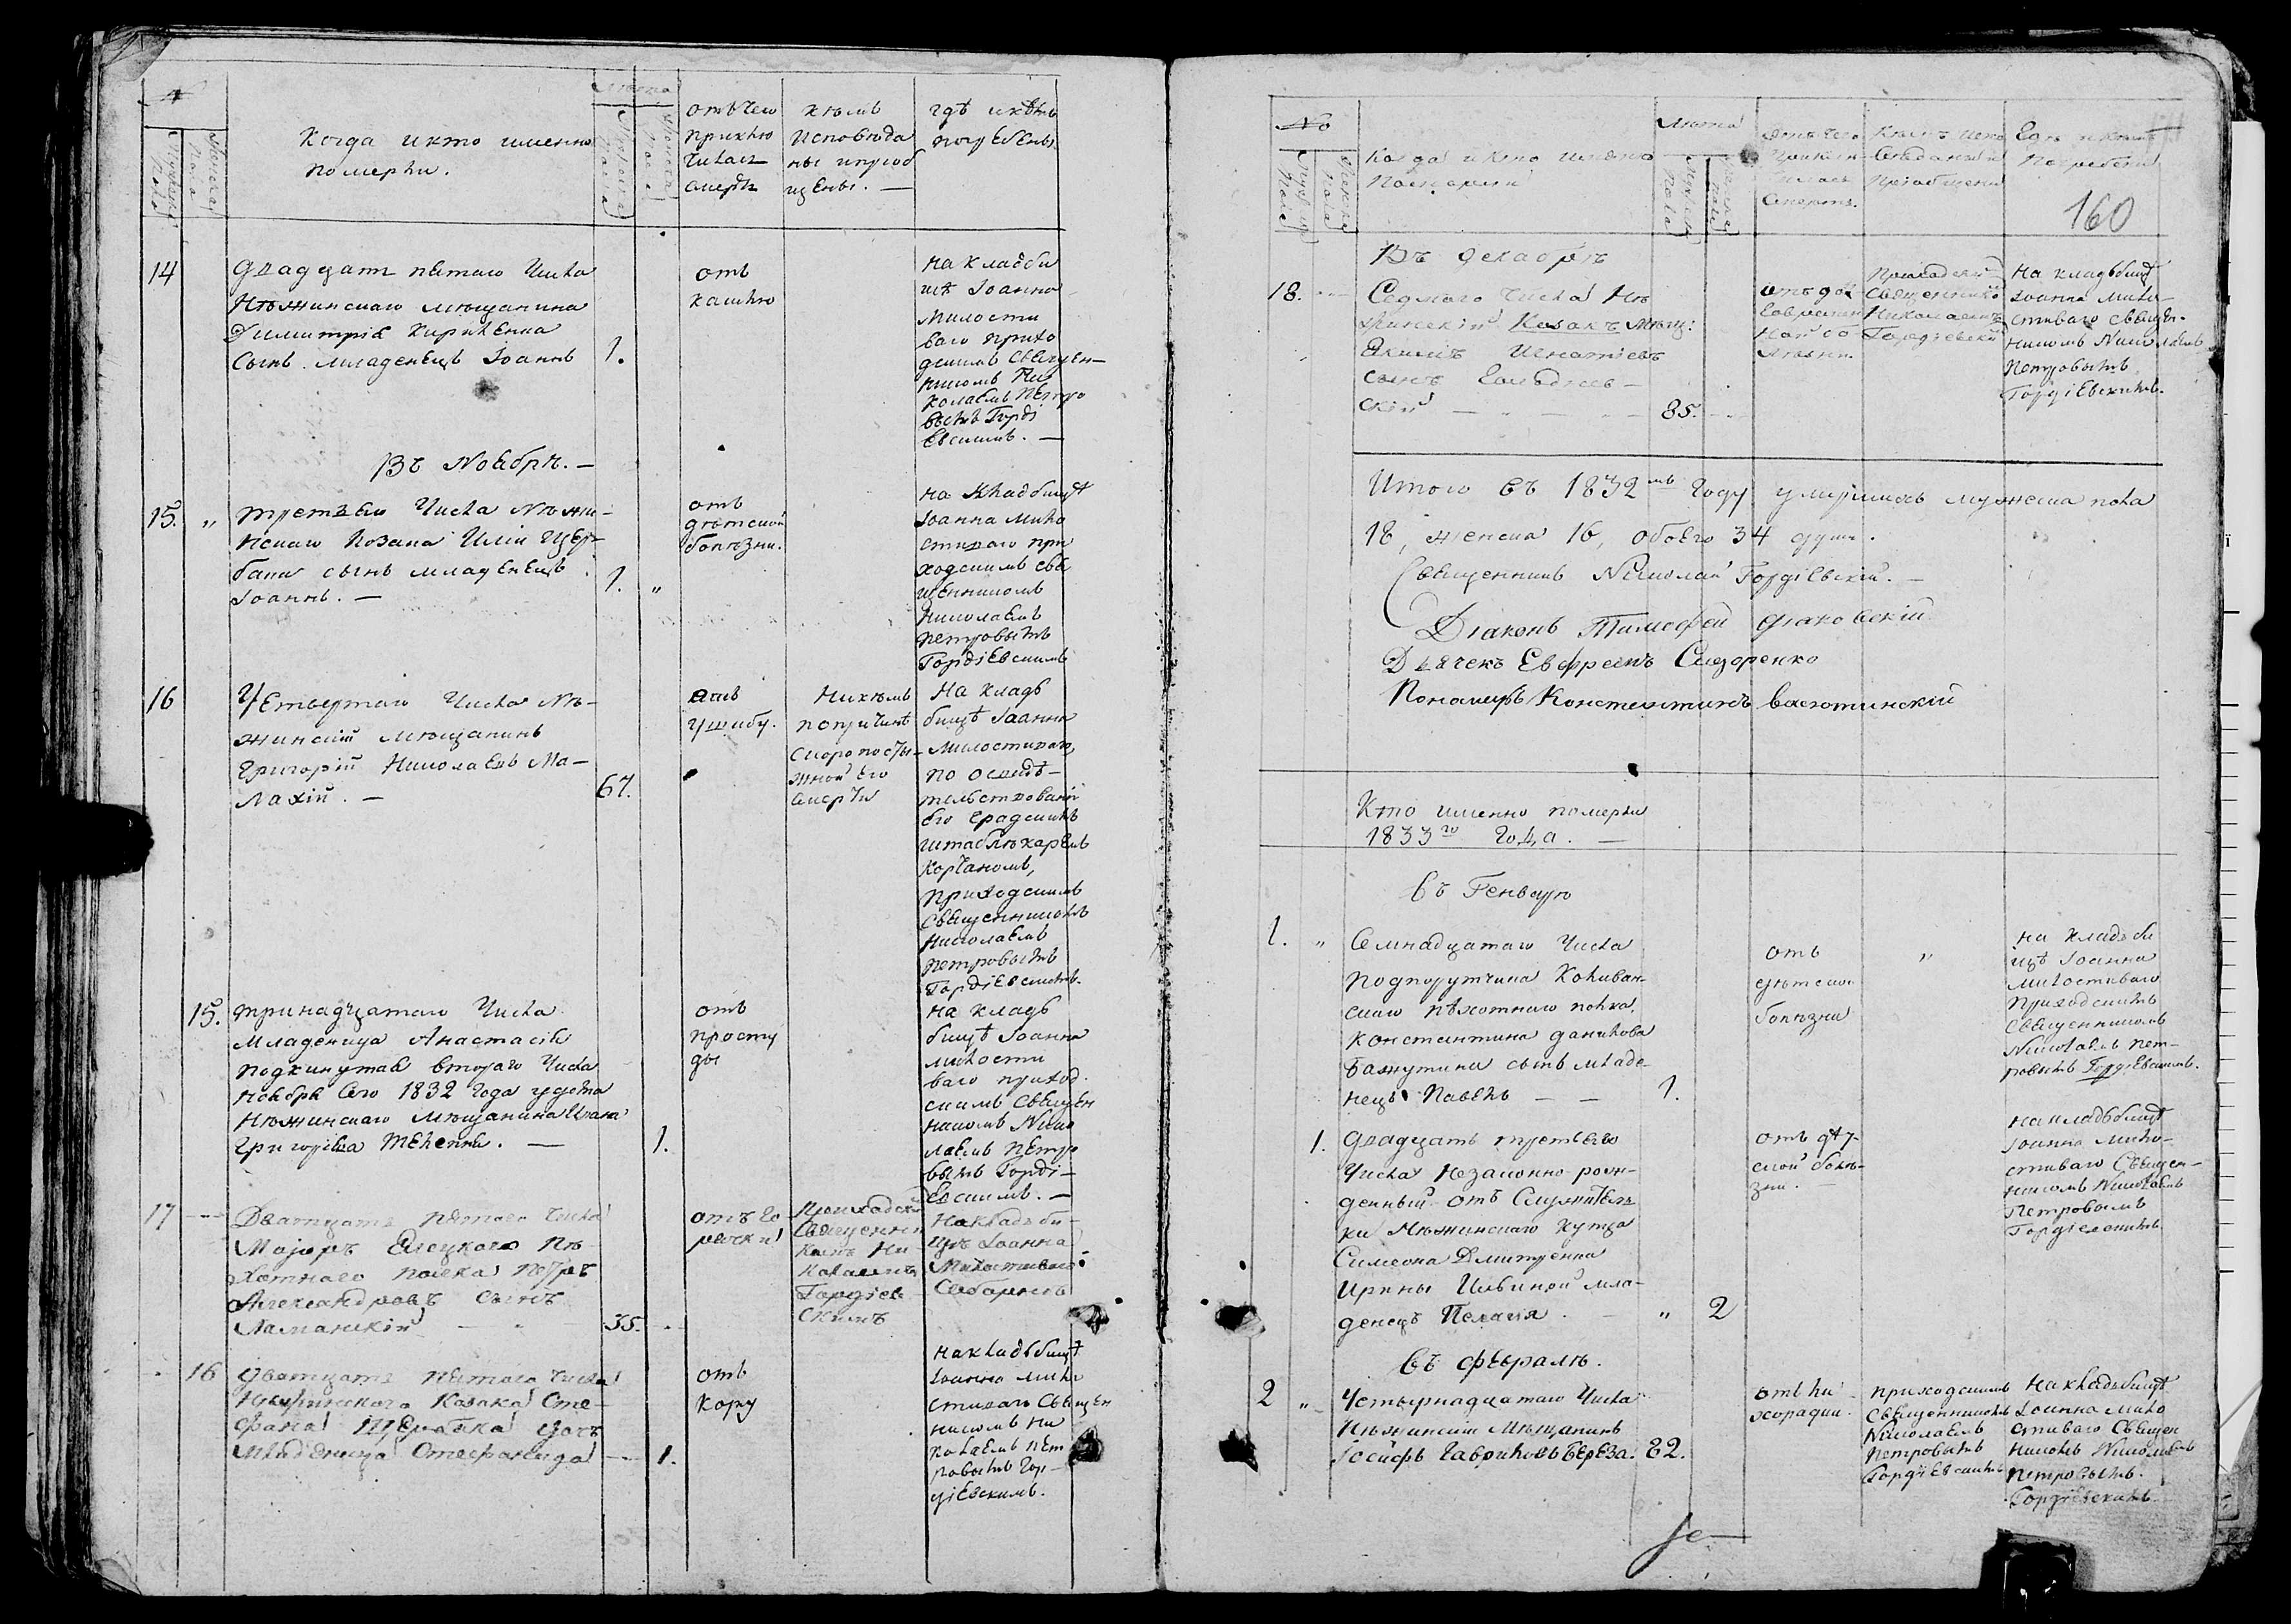 №
Мужеска пола
Женска пола
Когда и кто именно
померли.
Лета
Мужеска пола
Женска пола
отъ чего
приклю
чилась
смерть
кѣмъ
исповѣда
ны и приоб
щены. —
гдѣ и кѣмъ
погребены
14
Двадцать пятаго числа
Нѣжинскаго мѣщанина
Димитрія Кириленка
Сынъ младенецъ Іоаннъ
1.
отъ
кашлю
На кладби
щѣ Іоанна
Милости
ваго прихо
дскимъ Священ-
никомъ Ни
колаемъ Петро
вымъ Гордi
евскимъ. —
Въ Ноябрѣ. —
15. "
третьяго Числа Нѣжи-
нскаго Козака Иліи Щер-
бани сынъ младенецъ
Іоаннъ. —
1. "
отъ
дѣтской
болѣзни.
на Кладбищѣ
Іоанна Мило
стиваго при
ходскимъ свя
щенникомъ
Николаемъ
Петровымъ
Гордіевскимъ
16
Четвертаго Числа Нѣ-
жинскій мѣщанинъ
Григорій Николаевъ Ма-
лахій. —
67.
отъ
ушибу.
Никѣмъ
по причинѣ
скоропости-
жной его
смерти
На кладь
бищѣ Іоанна
Милостиваго,
по освидѣ-
тельствованіи
его Градскимъ
штаблѣкаремъ
Корчакомъ,
приходскимъ
Священникомъ
Николаемъ
Петровымъ
Гордіевскимъ.
15.
тринадцатаго Числа
Младеница Анастасія
подкинутая втораго Числа
Ноября сего 1832 года у дома
Нѣжинскаго Мѣщанина Ивана
Григорiева
1.
отъ
просту
ды
на кладь
бищѣ Іоанна
милости
ваго приход-
скимъ Священ
никомъ Нико
лаемъ Петро
вымъ Гордi-
евскимъ. —
17 —
Дватцать пятаго числа
Маіоръ Елецкаго пѣ-
хотнаго полка Петръ
Александровъ сынъ
Ламанскій —
35.
отъ го
рячки
Приходски
Священни
комъ Ни
колаемъ
Гордіев
скимъ
На кладьби-
щѣ Іоанна
Милостиваго
Соборнѣ
16
Дватцать пятаго числа
Нѣжинского Казака Сте-
фана дочь
Младеница Стефанида —
1.
отъ
кору
На кладьбищѣ
Іоанна Мило
стиваго Священ
никомъ Ни
колаемъ Пет
ровымъ Гор-
діевскимъ.
№
Мужеска пола
Женска пола
Когда и кто именно
Померли
Лета
Мужеска пола
Женска пола
отъ чего
приклю
чилась
смерть.
Кѣмъ испо
вѣданы и
Пріобщены
Где и кѣмъ
Погребены
160
Въ декабрѣ
18. —
Седмого Числа Нѣ
жинскій Казакъ Мѣщ:
Екимъ Игнатіевъ
сынъ
скій —
85. —
Приходски
Священнико
Николаемъ
Гордіевски
На кладьбищѣ
Іоанна Мило-
стиваго священ-
никомъ Николаемъ
Петровымъ
Гордіевскимъ.
Итого въ 1832мъ Году умершихъ мужеска пола
18, женска 16, обоего 34 души.
Священникъ Николай Гордіевскій. —
Діаконъ Тимофей Діаковскій
Дьячекъ Евфремъ Сидоренко
Пономарь Константинъ
Кто именно померли
1833го Года. —
Въ Генварѣ
1. "
Семнадцатаго Числа
Подпорутчика Колыван-
скаго пѣхотнаго полка,
Константина Данилова
Бажутина сынъ младе-
нецъ Павелъ — —
1.
отъ
дѣтской
болѣзни
"
на кладьби
щѣ Іоанна
милостиваго
Приходскимъ
Священникомъ
Николаемъ Пет-
ровымъ Гордіевскимъ.
1.
Двадцать третьяго
Числа Незаконно рож-
денный отъ Служитель
ки Нѣжинскаго купца
Симеона Дмитренка
Ирины Ильиной мла-
денецъ Пелагія. —
" 2
отъ дѣт-
ской болѣ-
зни. —
На кладьбищѣ
Іоанна Мило-
стиваго Священ-
никомъ Николаемъ
Петровымъ
Гордіевскимъ
Въ Февралѣ.
2 "
Четырнадцатаго Числа
Нѣжинскій Мѣщанинъ
Іосифъ Гавриловъ Береза.
82.
отъ ли
хорадки.
приходскимъ
Священникомъ
Николаемъ
Петровымъ
Гордіевскимъ
На кладьбищѣ
Іоанна Мило
стиваго Священ
никомъ Николаемъ
Петровымъ.
Гордіевскимъ